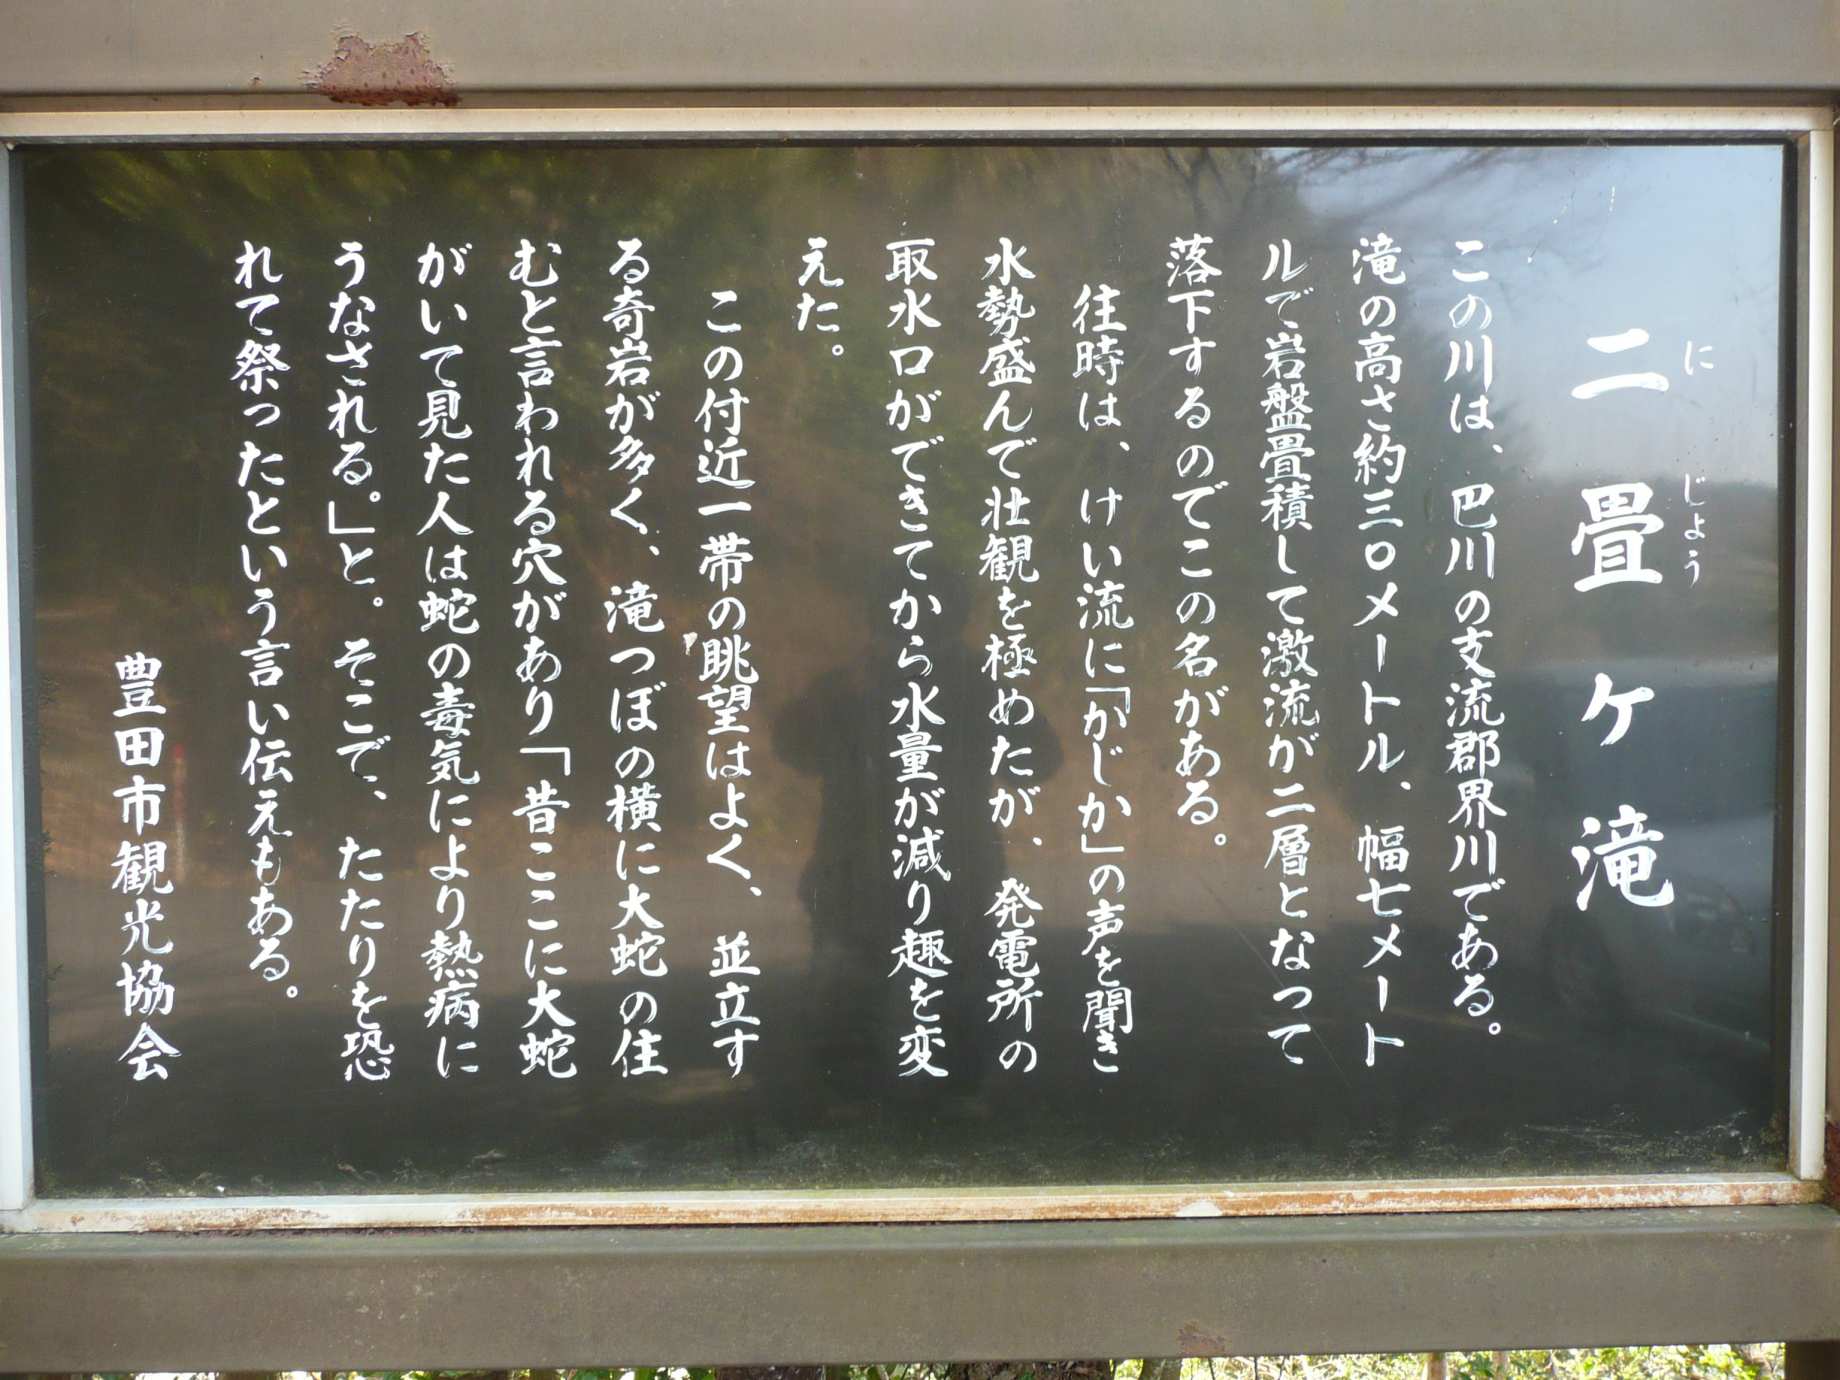 二畳ケ滝
に じょう
この川は、巴川の支流郡界川である。
滝の高さ約三〇メートル、幅七メート
ルで岩盤畳積して激流が二層となって
落下するのでこの名がある。
往時は、けい流に「かじか」の声を聞き
水勢盛んで壮観を極めたが、発電所の
取水口ができてから水量が減り趣を変
えた。
この付近一帯の眺望はよく、並立す
る奇岩が多く、滝つぼの横に大蛇の住
むと言われる穴があり「昔ここに大蛇
がいて見た人は蛇の毒気により熱病に
うなされる。」と。そこで、たたりを恐
れて祭ったという言い伝えもある。
豊田市観光協会